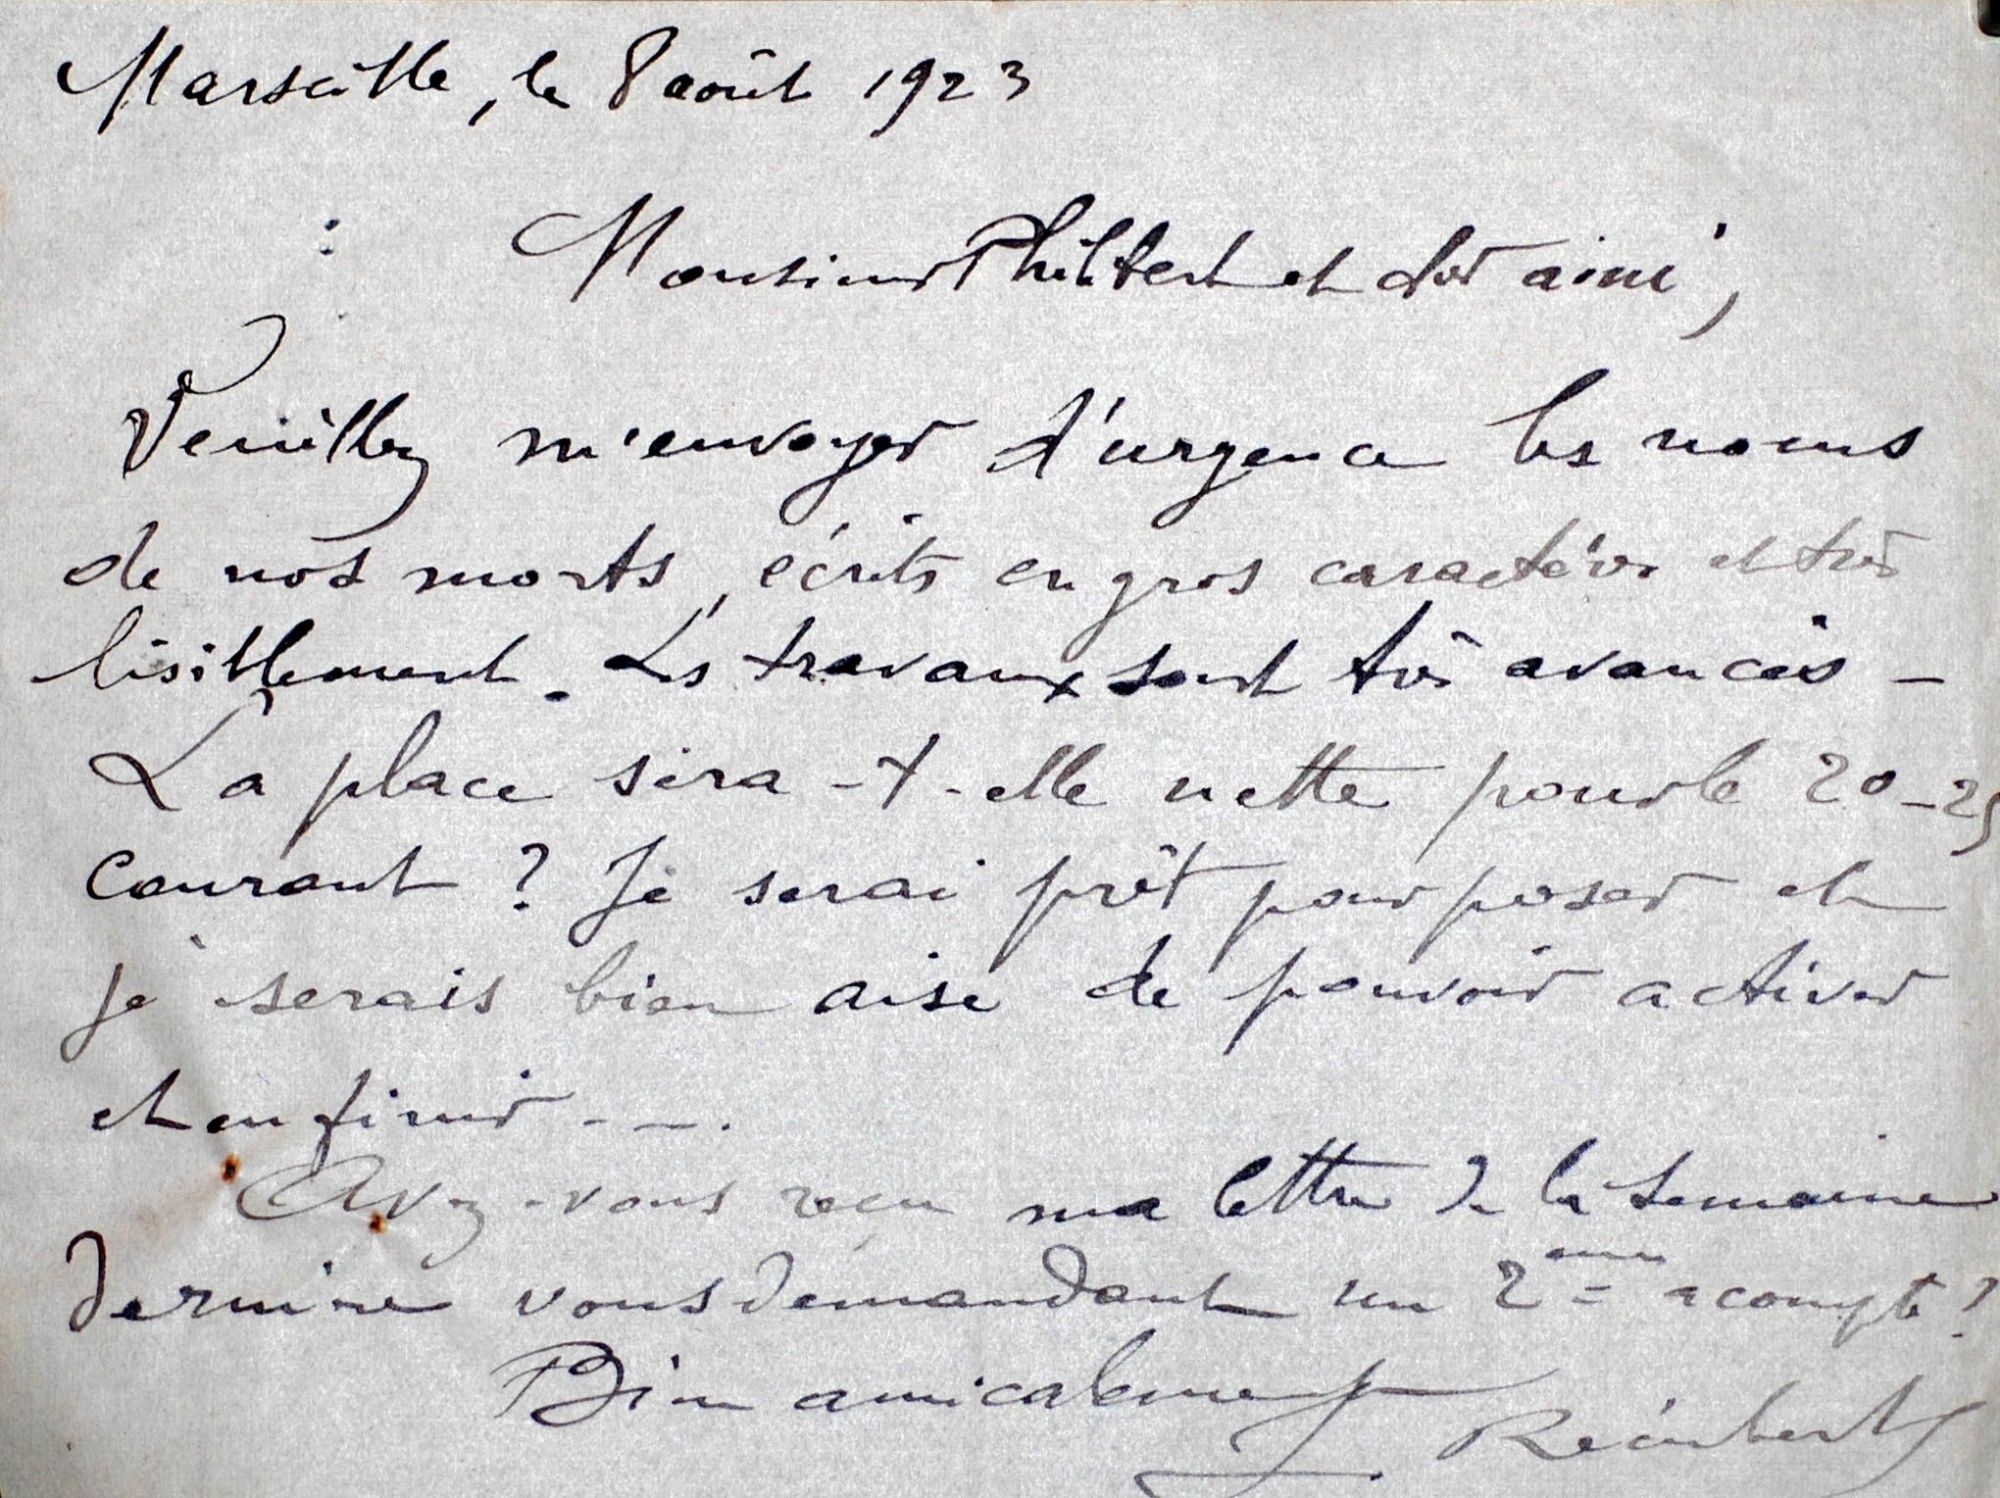 Marseille, le 8 août 1923
Monsieur Philibert et cher ami,
Veuillez m'envoyer d'urgence les noms
de nos morts, écrits en gros caractères et très
lisiblement. Les travaux sont très avancés -
La place sera-t-elle nette pour le 20-25
courant ? Je serai prêt pour poser et
je serais bien aise de pouvoir activer
et en finir - - .
Avez-vous reçu ma lettre de la semaine
dernière vous demandant un 2eme acompte ?
Bien amicalement